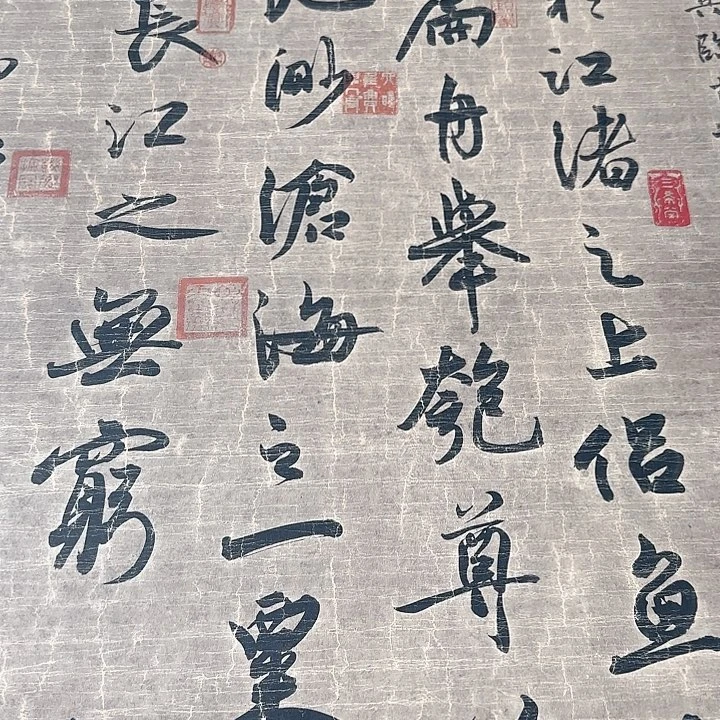 江渚之上侶魚
扁舟舉匏尊
渺滄海之一粟
長江之無窮